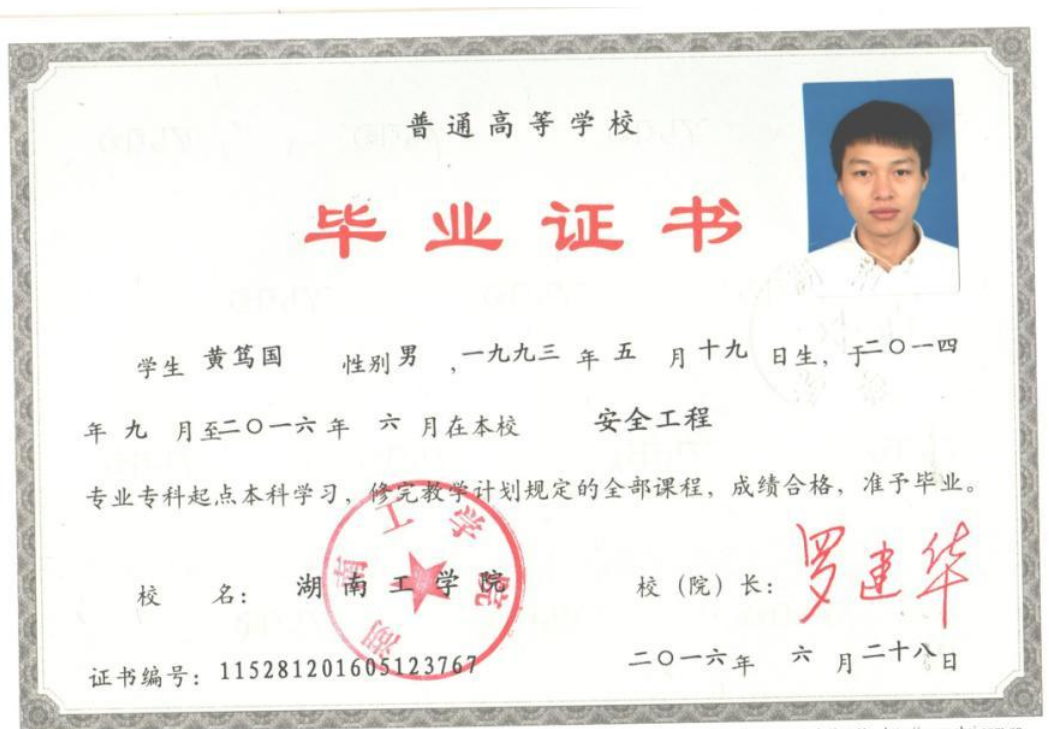 普通高等学校
毕业证书
学生 黄笃国 性别 男 ,一九九三 年 五 月 十九 日生, 于二〇一四
年 九 月至二〇一六 年 六 月在本校 安全工程
专业专科起点本科学习, 修完教学计划规定的全部课程, 成绩合格, 准予毕业。
湖南工学院
校 名: 湖南工学院 校(院)长: 罗建华
证书编号: 115281201605123767 二〇一六年 六 月二十八日